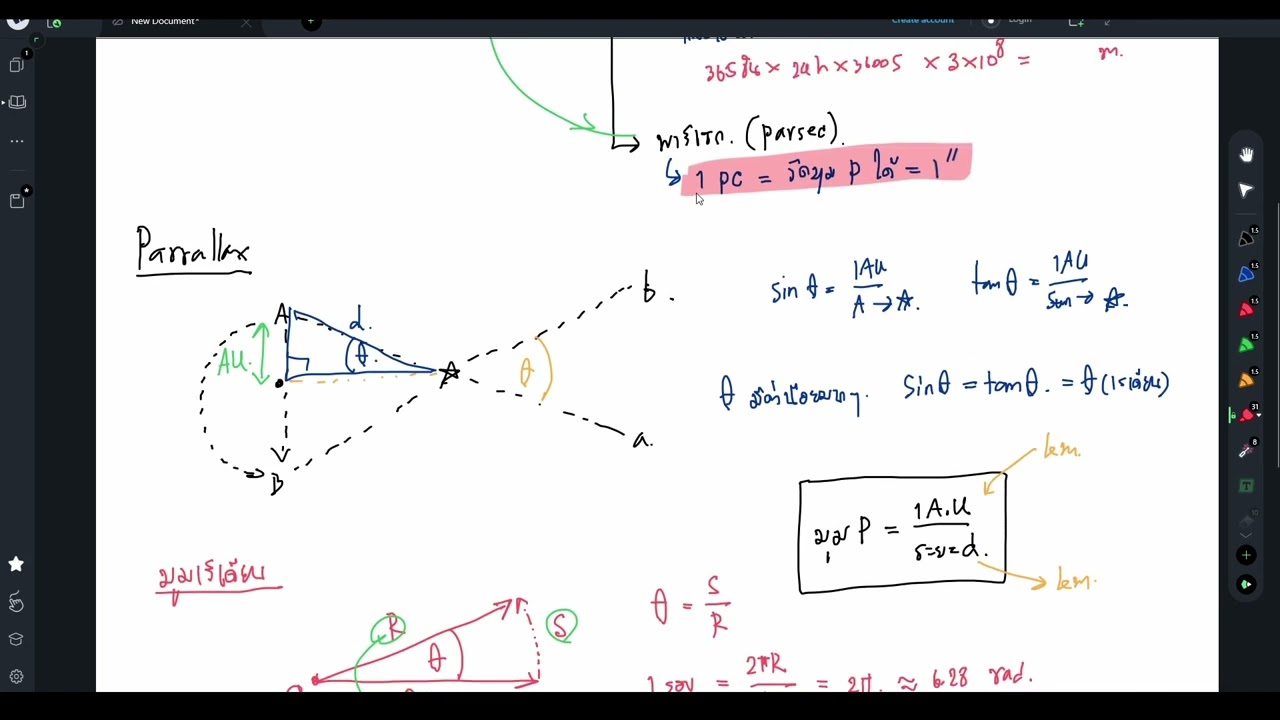 New Document*
Create account
Login
365 วัน x 24 h x 3600 s x 3x10⁸ = m.
พาร์เซก. (parsec).
1 pc = วัดมุม p ได้ = 1"
Parrallax
A
d.
AU.
θ.
θ
b.
a.
B
sin θ = 1AU / A → ☆.
tan θ = 1AU / Sun → ☆.
θ มีค่าน้อยมากๆ. sinθ = tanθ. = θ (เรเดียน)
km.
มุม P = 1A.U / ระยะ d.
km.
มุมเรเดียน
R
θ
S
θ = S / R
1 รอบ = 2πR = 2π. ≈ 6.28 rad.